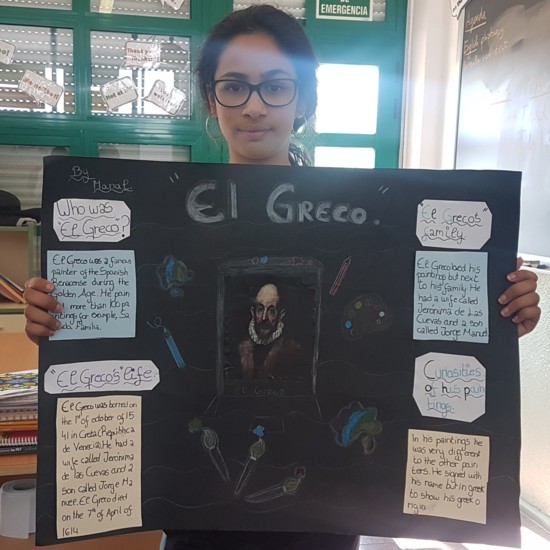 DE
EMERGENCIA
By
Manal
"El Greco."
Who was
"El Greco"?
El Greco was a famous
painter of the Spanish
Renacense during the
Golden Age. He pain
more than 100 pa
intings for exmple, Sa
Familia.
"El Greco's" life
El Greco was borned on
the 1st of october of 15
41 in Creta (República
de Venecia). He had a
wife called Jerónima
de las Cuevas and a
son called Jorge Ma
nuel. El Greco died
on the 7th of April of
1614
El Greco
"El Greco's"
family
El Greco loved his
paintings but next
to his family. He
had a wife called
Jerónima de Las
Cuevas and a son
called Jorge Manuel
Curiosities
of his pain
tings.
In his paintings he
was very different
to the other pain
ters. He signed with
his name but in greek
to show his greek o
rigin.